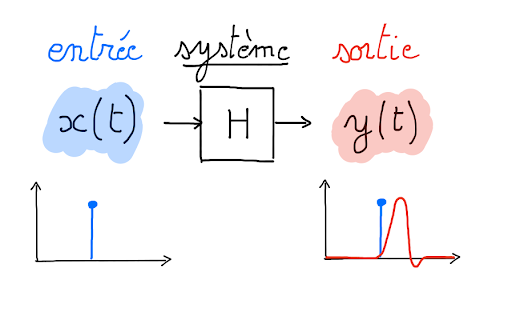 entrée système sortie
x(t) H y(t)